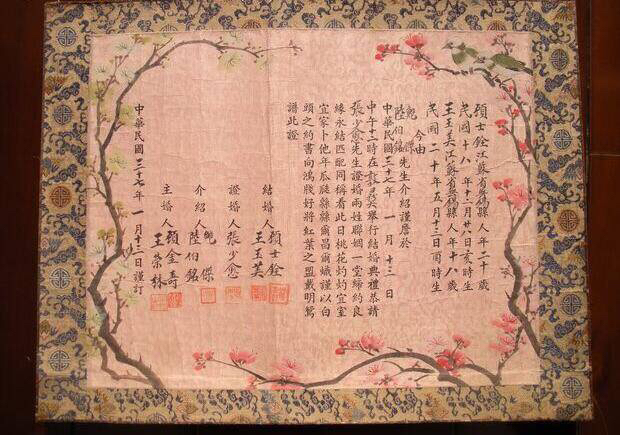 顧士銓江蘇省無錫縣人年二十歲
民國十八年十二月廿八日亥時生
王玉美江蘇省無錫縣人年十八歲
民國二十年五月十三日酉時生
今由
鮑傑
陸伯銘先生介紹謹詹於
中華民國三十七年一月十三日
中午十二時在舉行結婚典禮恭請
張少愈先生證婚兩姓聯姻一堂締約良
緣永結匹配同稱看此日桃花灼灼宜室
宜家卜他年瓜瓞緜緜爾昌爾熾謹以白
頭之約書向鴻牋好將紅葉之盟載明鴛
譜此證
結婚人 顧士銓
王玉美
證婚人 張少愈
介紹人 鮑傑
陸伯銘
主婚人 顧金壽
王榮林
中華民國三十七年一月十二日謹訂